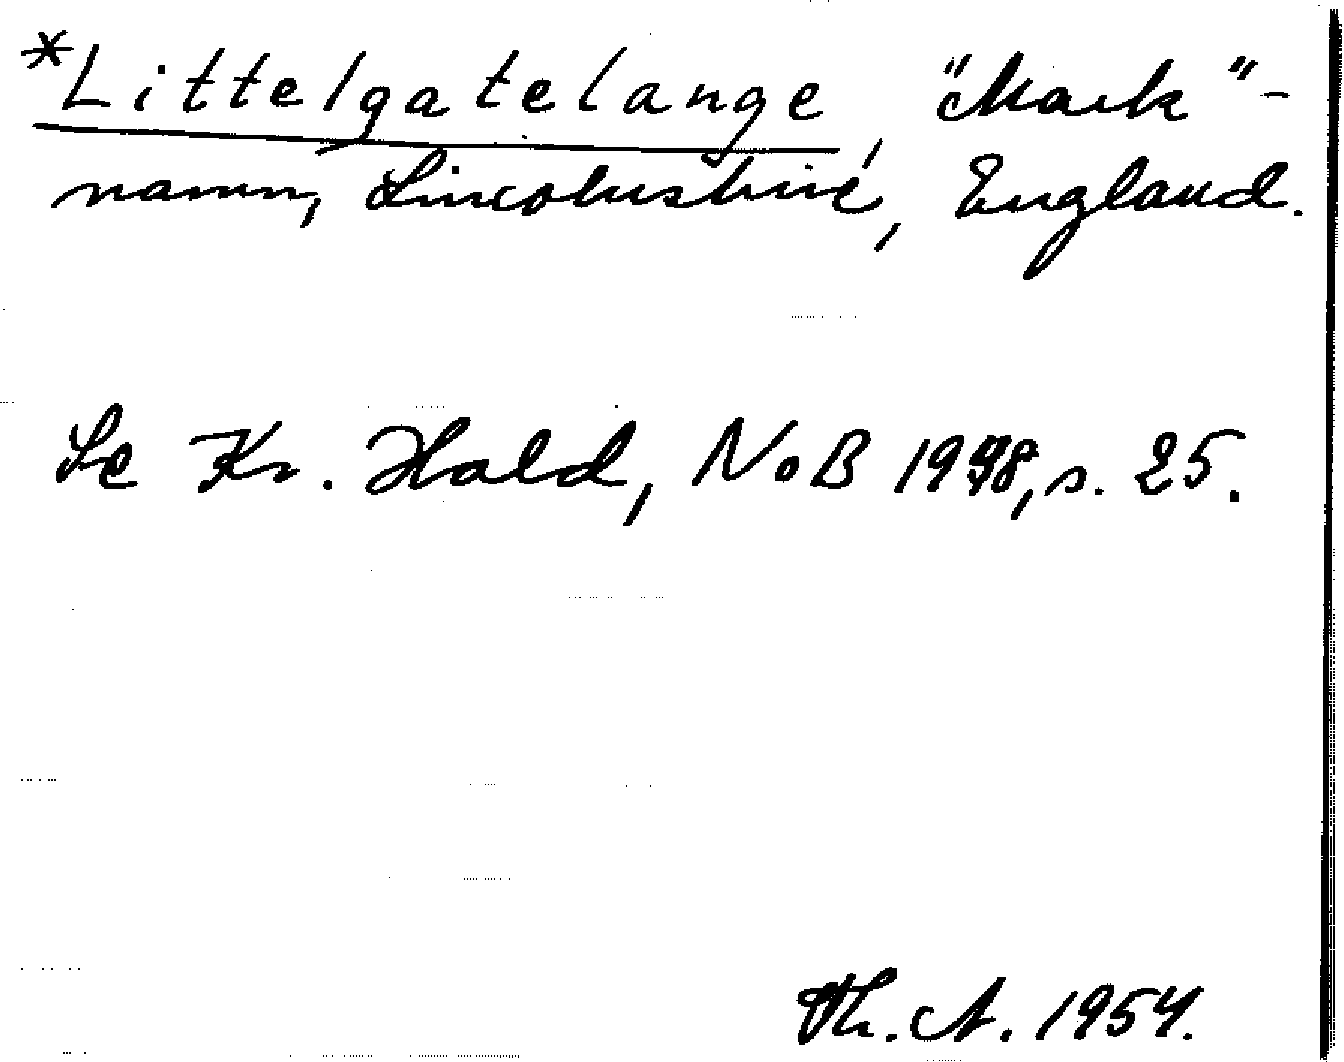 *Littelgatelange, "Mark"-
namn, Lincolnshire, England.
Se Kr. Hald, NoB 1948, s. 25.
Th. A. 1954.